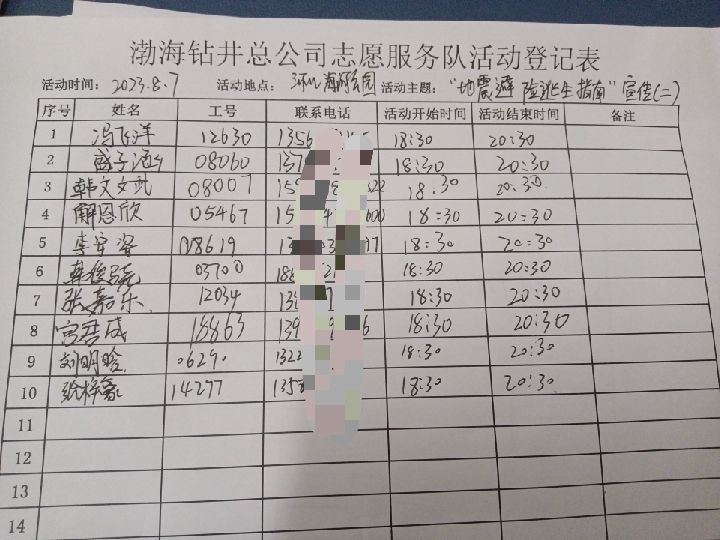 渤海钻井总公司志愿服务队活动登记表
活动时间: 2023.8.7 活动地点: 公园 活动主题: "地震避险逃生指南"宣传(二)
序号 姓名 工号 联系电话 活动开始时间 活动结束时间 备注
1 冯 洋 12630 1356 18:30 20:30
2 盛子 08060 137 18:30 20:30
3 韩文 08007 15 18:30 20:30
4 解恩欣 05467 15 18:30 20:30
5 李宇 08619 18:30 20:30
6 韩俊 03700 18 18:30 20:30
7 张嘉乐 12034 13 18:30 20:30
8 宫 成 18863 139 6 18:30 20:30
9 刘明 0629 132 18:30 20:30
10 张梓豪 14277 135 18:30 20:30
11
12
13
14